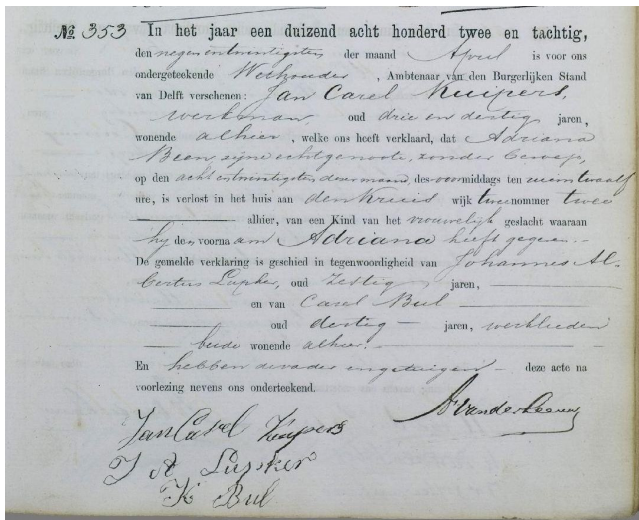 No 353 In het jaar een duizend acht honderd twee en tachtig,
den negenentwintigsten der maand April is voor ons
ondergeteekende Wethouder, Ambtenaar van den Burgerlijken Stand
van Delft verschenen: Jan Carel Kuipers,
werkman, oud drie en dertig jaren,
wonende alhier, welke ons heeft verklaard, dat Adriana
Been, zijne echtgenoote, zonder beroep,
op den achtentwintigsten dezer maand, des voormiddags ten ruim twaalf
ure, is verlost in het huis aan den Kruis wijk twee nummer twee
alhier, van een Kind van het vrouwelijk geslacht waaraan
hij den voornaam Adriana heeft gegeven.
De gemelde verklaring is geschied in tegenwoordigheid van Johannes Al-
bertus Lupker, oud zestig jaren,
en van Carel Bul
oud dertig jaren, werklieden
beide wonende alhier.
En hebben de vader en getuigen deze acte na
voorlezing nevens ons onderteekend.
Jan Carel Kuypers
A vander Leeuw
J A Lupker
K Bul